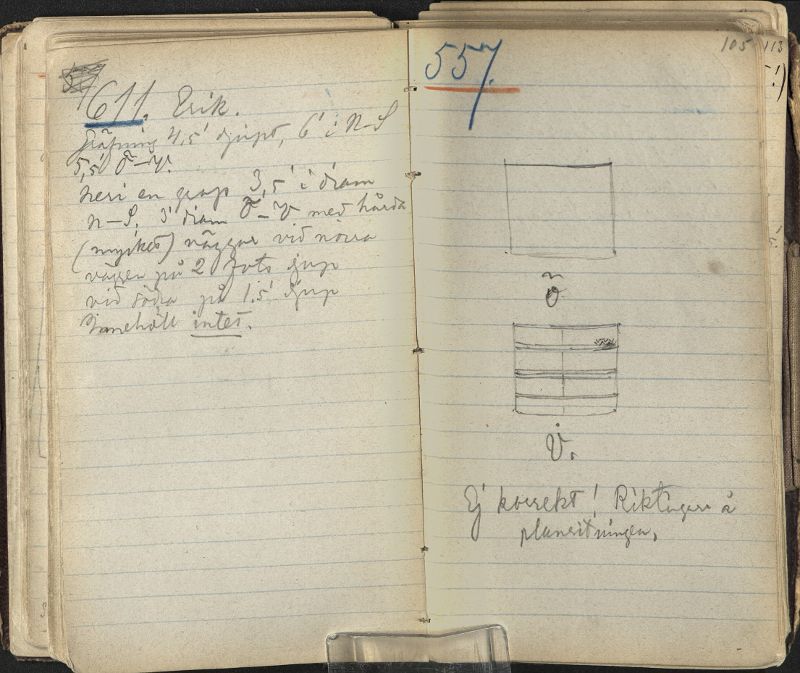 611. Erik.
Gräfning 4,5' djupt, 6' i N–S
5,5' Ö–V.
heri en grop 3,5' i diam
N–S, 3' diam Ö–V med hårda
(mycket) väggar vid norra
väggen på 2 fots djup
vid södra på 1.5' djup
Innehöll intet.
557.
105
113
Ö
V.
Ej korrekt! Riktigare å
planritningen.